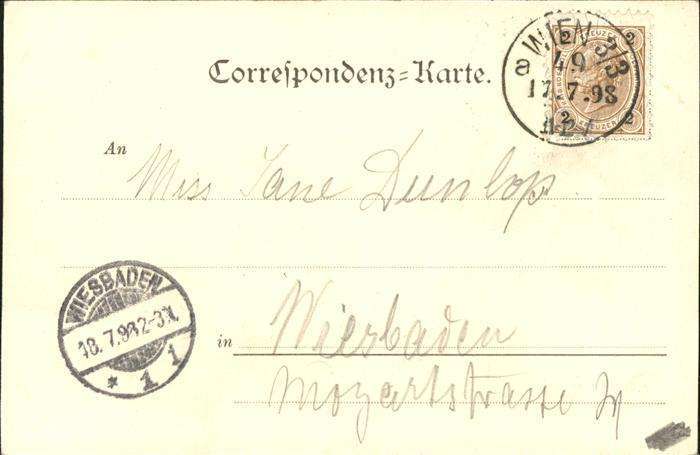 Correspondenz-Karte.
WIEN 3/3
49
17.7.98
a
2 KREUZER 2
2 KREUZER 2
An Miss Jane Dunlop
WIESBADEN
18.7.98 2-3N.
* 1 1
in Wiesbaden
Mozartstrasse